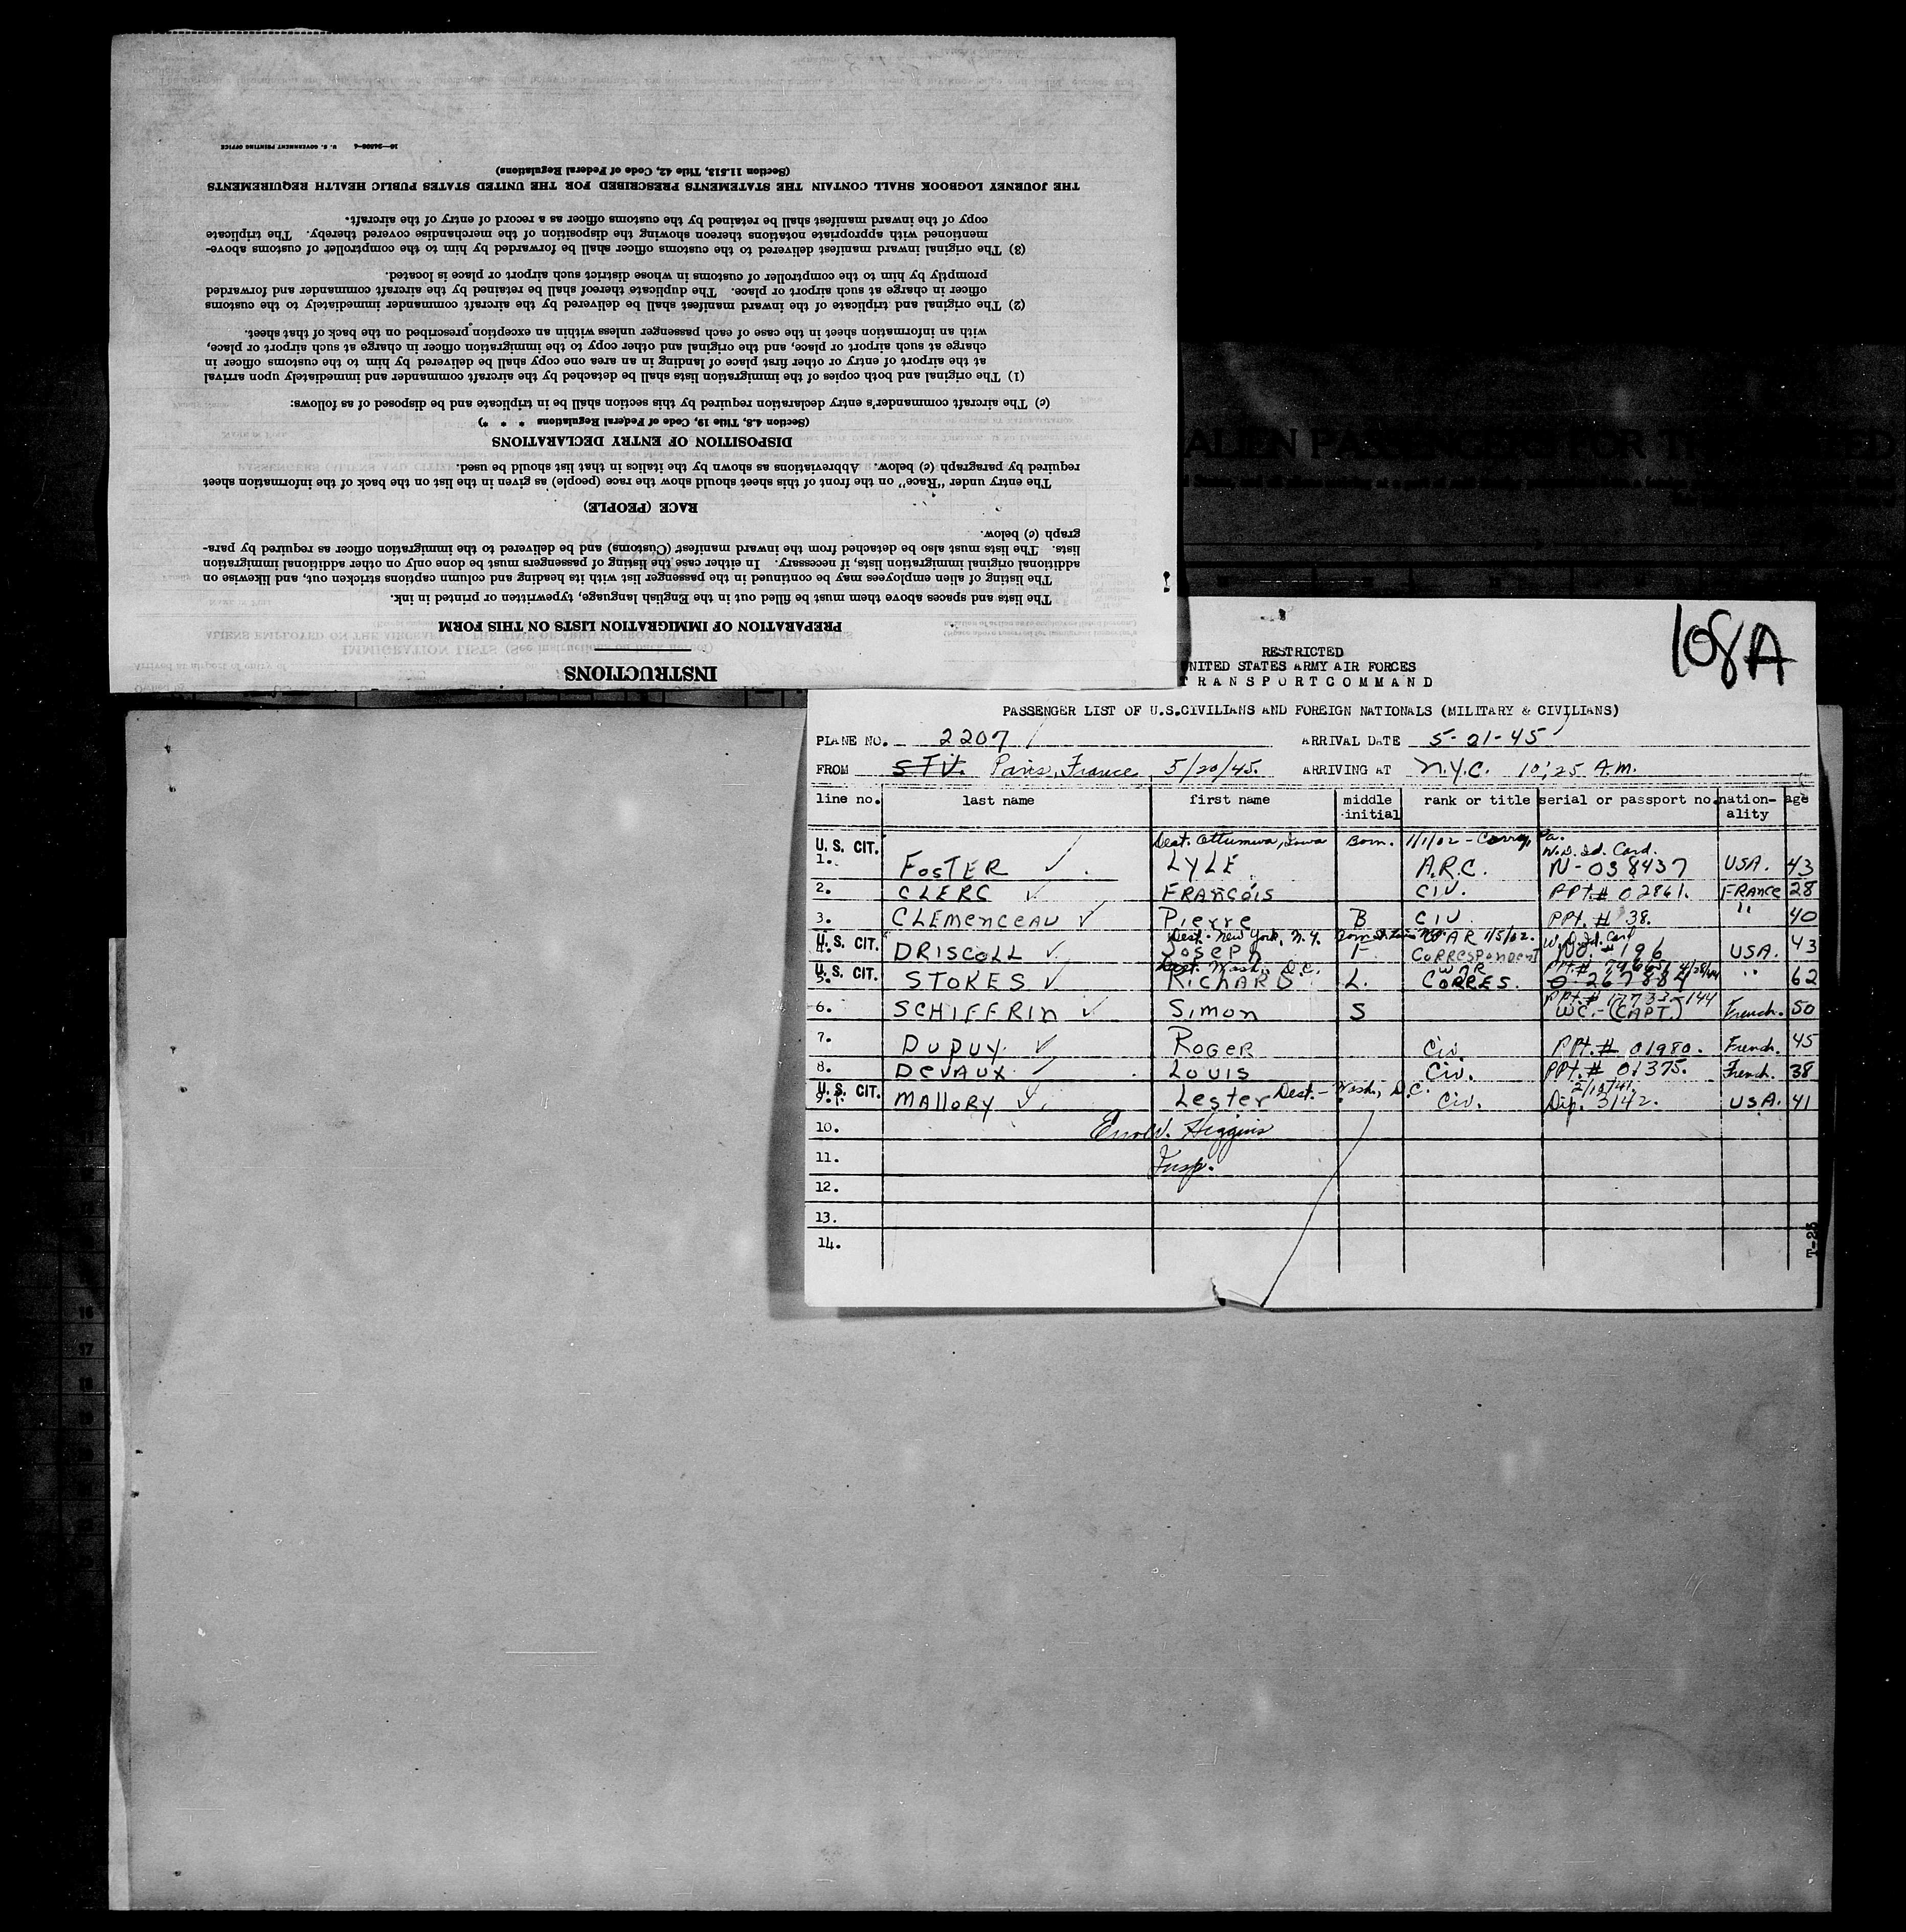 INSTRUCTIONS
PREPARATION OF IMMIGRATION LISTS ON THIS FORM
The lists and spaces above them must be filled out in the English language, typewritten or printed in ink.
The listing of alien employees may be continued in the passenger list with its heading and column captions stricken out, and likewise on
additional original immigration lists, if necessary. In either case the listing of passengers must be done only on other additional immigration
lists. The lists must also be detached from the inward manifest (Customs) and be delivered to the immigration officer as required by para-
graph (c) below.
RACE (PEOPLE)
The entry under "Race" on the front of this sheet should show the race (people) as given in the list on the back of the information sheet
required by paragraph (c) below. Abbreviations as shown by the italics in that list should be used.
DISPOSITION OF ENTRY DECLARATIONS
(Section 4.8, Title 19, Code of Federal Regulations * * *)
(c) The aircraft commander's entry declaration required by this section shall be in triplicate and be disposed of as follows:
(1) The original and both copies of the immigration lists shall be detached by the aircraft commander and immediately upon arrival
at the airport of entry or other first place of landing in an area one copy shall be delivered by him to the customs officer in
charge at such airport or place, and the original and other copy to the immigration officer in charge at such airport or place,
with an information sheet in the case of each passenger unless within an exception prescribed on the back of that sheet.
(2) The original and triplicate of the inward manifest shall be delivered by the aircraft commander immediately to the customs
officer in charge at such airport or place. The duplicate thereof shall be retained by the aircraft commander and forwarded
promptly by him to the comptroller of customs in whose district such airport or place is located.
(3) The original inward manifest delivered to the customs officer shall be forwarded by him to the comptroller of customs above-
mentioned with appropriate notations thereon showing the disposition of the merchandise covered thereby. The triplicate
copy of the inward manifest shall be retained by the customs officer as a record of entry of the aircraft.
THE JOURNEY LOGBOOK SHALL CONTAIN THE STATEMENTS PRESCRIBED FOR THE UNITED STATES PUBLIC HEALTH REQUIREMENTS
(Section 11.513, Title 42, Code of Federal Regulations)
U. S. GOVERNMENT PRINTING OFFICE
ALIEN PASSENGERS FOR
108A
RESTRICTED
UNITED STATES ARMY AIR FORCES
TRANSPORT COMMAND
PASSENGER LIST OF U.S.CIVILIANS AND FOREIGN NATIONALS (MILITARY & CIVILIANS)
PLANE NO. 2207 ARRIVAL DATE 5-21-45
FROM STV. Paris, France, 5/20/45. ARRIVING AT N.Y.C. 10:25 A.M.
line no. last name first name middle initial rank or title serial or passport no. nation-ality age
Dest. Ottumwa, Iowa Born. 1/1/02 - Corry, Pa.
U.S. CIT. 1. FOSTER LYLE A.R.C. W.D. Id. Card. N-038437 USA. 43
2. CLERC FRANÇOIS CIV. PPt.# 02861. FRANCE 28
3. CLEMENCEAU Pierre B CIV. PPt. # 38. " 40
Dest. New York, N.Y. 1/5/02. W.D. Id. Card
U.S. CIT. 4. DRISCOLL Joseph F WAR CORRESPONDENT NO. - 196 USA. 43
Dest. Wash., D.C.
U.S. CIT. 5. STOKES RICHARD L. WAR CORRES. O-267884 " 62
6. SCHIFFRIN Simon S WC.-(CAPT.) French. 50
7. DUPUY ROGER Civ. PPt.# 01980. French. 45
8. DEVAUX LOUIS Civ. PPt.# 01375. French. 38
U.S. CIT. 9. MALLORY Lester Dest. - Wash., D.C. Civ. 2/10/41. Dip. 3142. USA. 41
10. Errol W. Higgins
11. Insp.
12.
13.
14.
T-23